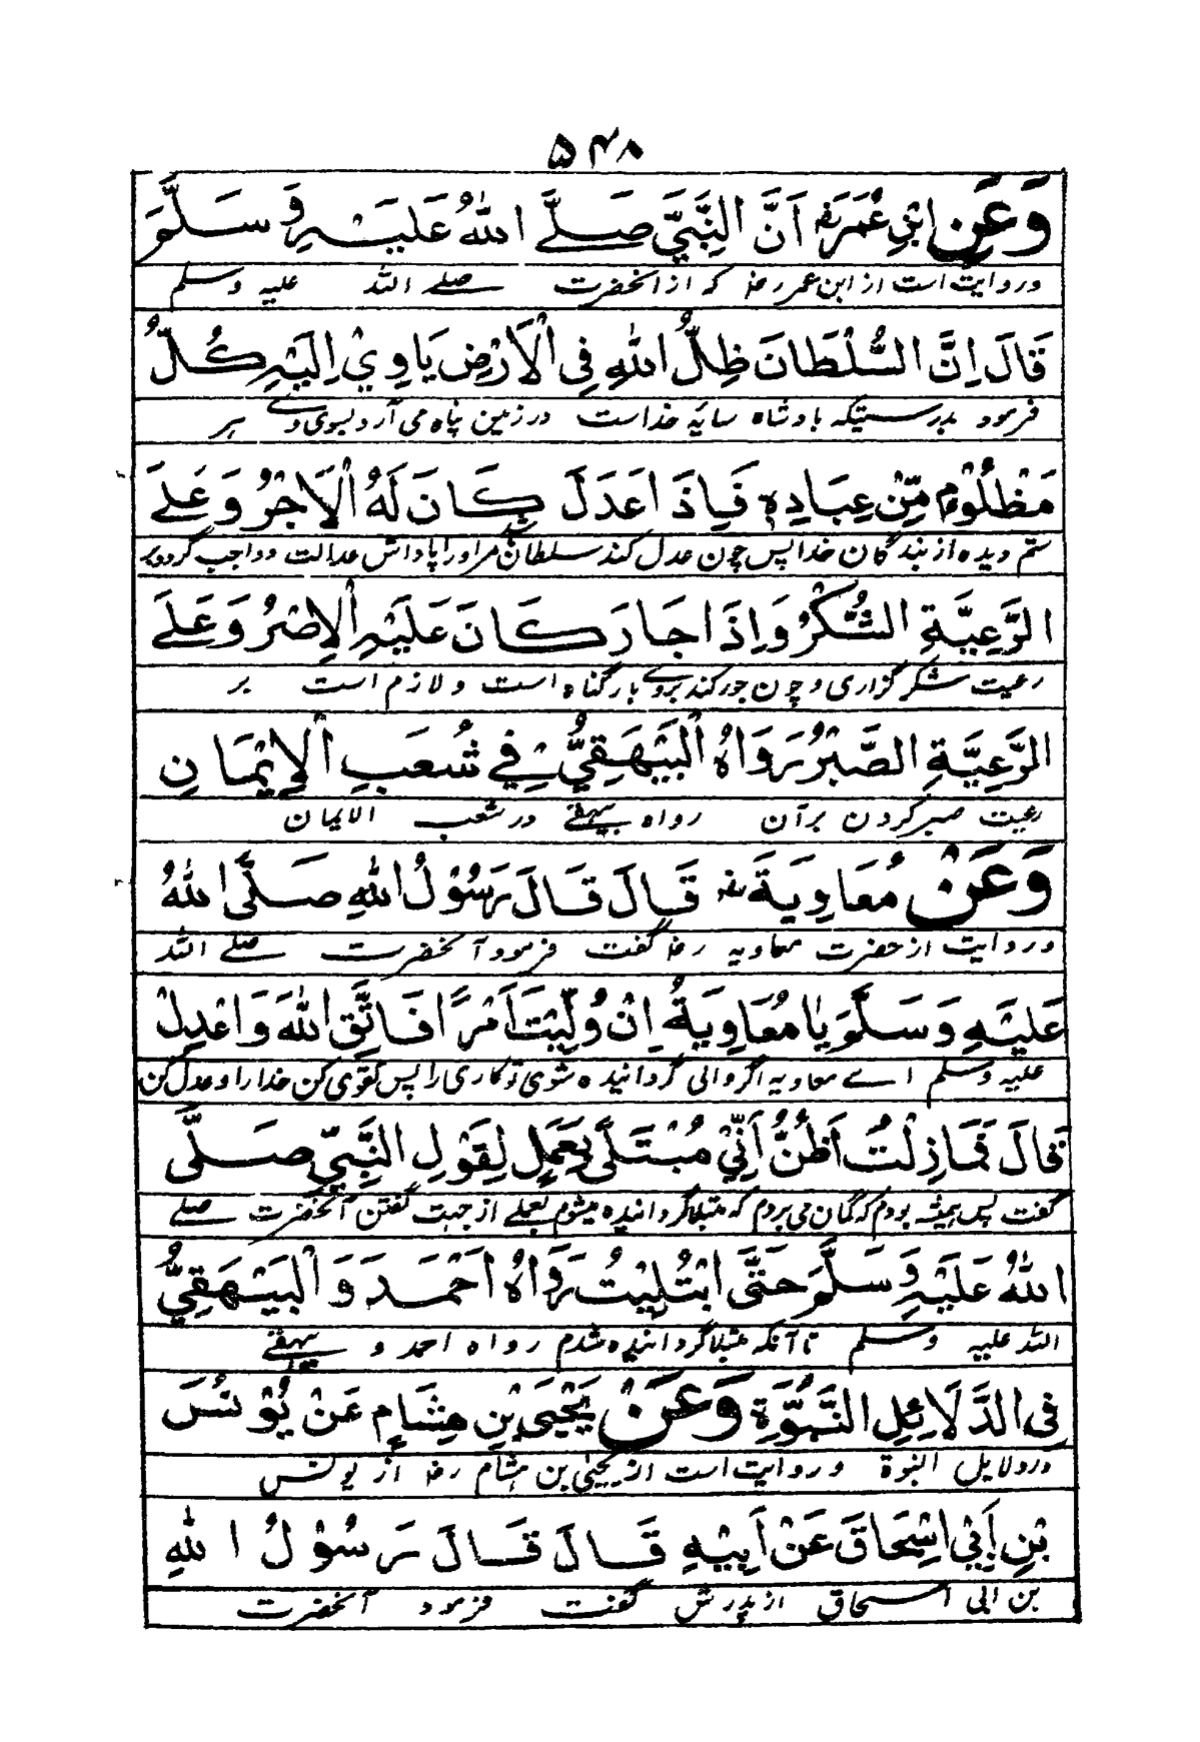 ۵۴۸
وَعَنِ ابْنِ عُمَرَ رض اَنَّ النَّبِيَّ صَلَّے اللهُ عَلَيْهِ وَسَلَّمَ
و روایت است از ابن عمر رض که از آنحضرت صلے اللہ علیہ وسلم
قَالَ اِنَّ السُّلْطَانَ ظِلُّ اللهِ فِى الْاَرْضِ يَاوِيْ اِلَيْهِ كُلُّ
فرمود بدرستیکہ بادشاہ سایۂ خداست در زمین پناہ می آرد بسوی وے ہر
مَظْلُوْمٍ مِّنْ عِبَادِهٖ فَاِذَا عَدَلَ كَانَ لَهُ الْاَجْرُ وَعَلَے
ستم دیدہ از بندگان خدا پس چون عدل کند سلطان باشد مر او را پاداش عدالت و واجب گردد بر
الرَّعِيَّةِ الشُّكْرُ وَاِذَا جَارَ كَانَ عَلَيْهِ الْاِصْرُ وَعَلَے
رعیت شکر گزاری و چون جور کند بروے بار گناہ است و لازم است بر
الرَّعِيَّةِ الصَّبْرُ رَوَاهُ الْبَيْهَقِيُّ فِيْ شُعَبِ الْاِيْمَانِ
رعیت صبر کردن بر آن رواہ بیہقے در شعب الایمان
وَعَنْ مُعَاوِيَةَ رض قَالَ قَالَ رَسُوْلُ اللهِ صَلَّى اللهُ
و روایت از حضرت معاویہ رض گفت فرمود آنحضرت صلے اللہ
عَلَيْهِ وَسَلَّمَ يَا مُعَاوِيَةُ اِنْ وُلِّيْتَ اَمْرًا فَاتَّقِ اللهَ وَاعْدِلْ
علیہ وسلم اے معاویہ اگر والی گردانیدہ شوی تو کاری را پس تقوی کن خدا را و عدل کن
قَالَ فَمَا زِلْتُ اَظُنُّ اَنِّيْ مُبْتَلًى بِعَمَلٍ لِقَوْلِ النَّبِيِّ صَلَّى
گفت پس ہمیشہ بودم کہ گمان می بردم کہ مبتلا گردانیدہ میشوم بعملے از جہت گفتن آنحضرت صلے
اللهُ عَلَيْهِ وَسَلَّمَ حَتَّى ابْتُلِيْتُ رَوَاهُ اَحْمَدَ وَالْبَيْهَقِيُّ
اللہ علیہ وسلم تا آنکہ مبتلا گردانیدہ شدم رواہ احمد و بیہقے
فِى الدَّلَائِلِ النَّبُوَّةِ وَعَنْ يَحْيَى بْنِ هِشَامٍ عَنْ يُوْنُسَ
در دلایل النبوۃ و روایت است از یحیٰی بن ہشام رض از یونس
بْنِ اَبِيْ اِسْحَاقَ عَنْ اَبِيْهِ قَالَ قَالَ رَسُوْلُ اللهِ
بن ابی اسحاق از پدرش گفت فرمود آنحضرت